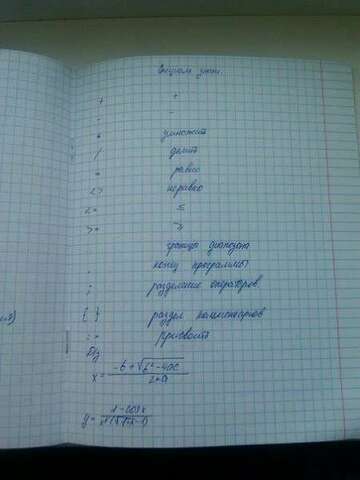 знаки
+ +
* умножит
/ делит
= равно
<> неравно
<= ≤
>= ≥
граница диапазона
конец программы
; разделение операторов
{ } раздел комментариев
:= присвоить
Д/з
x = -b + √b² - 4ac / 2*a